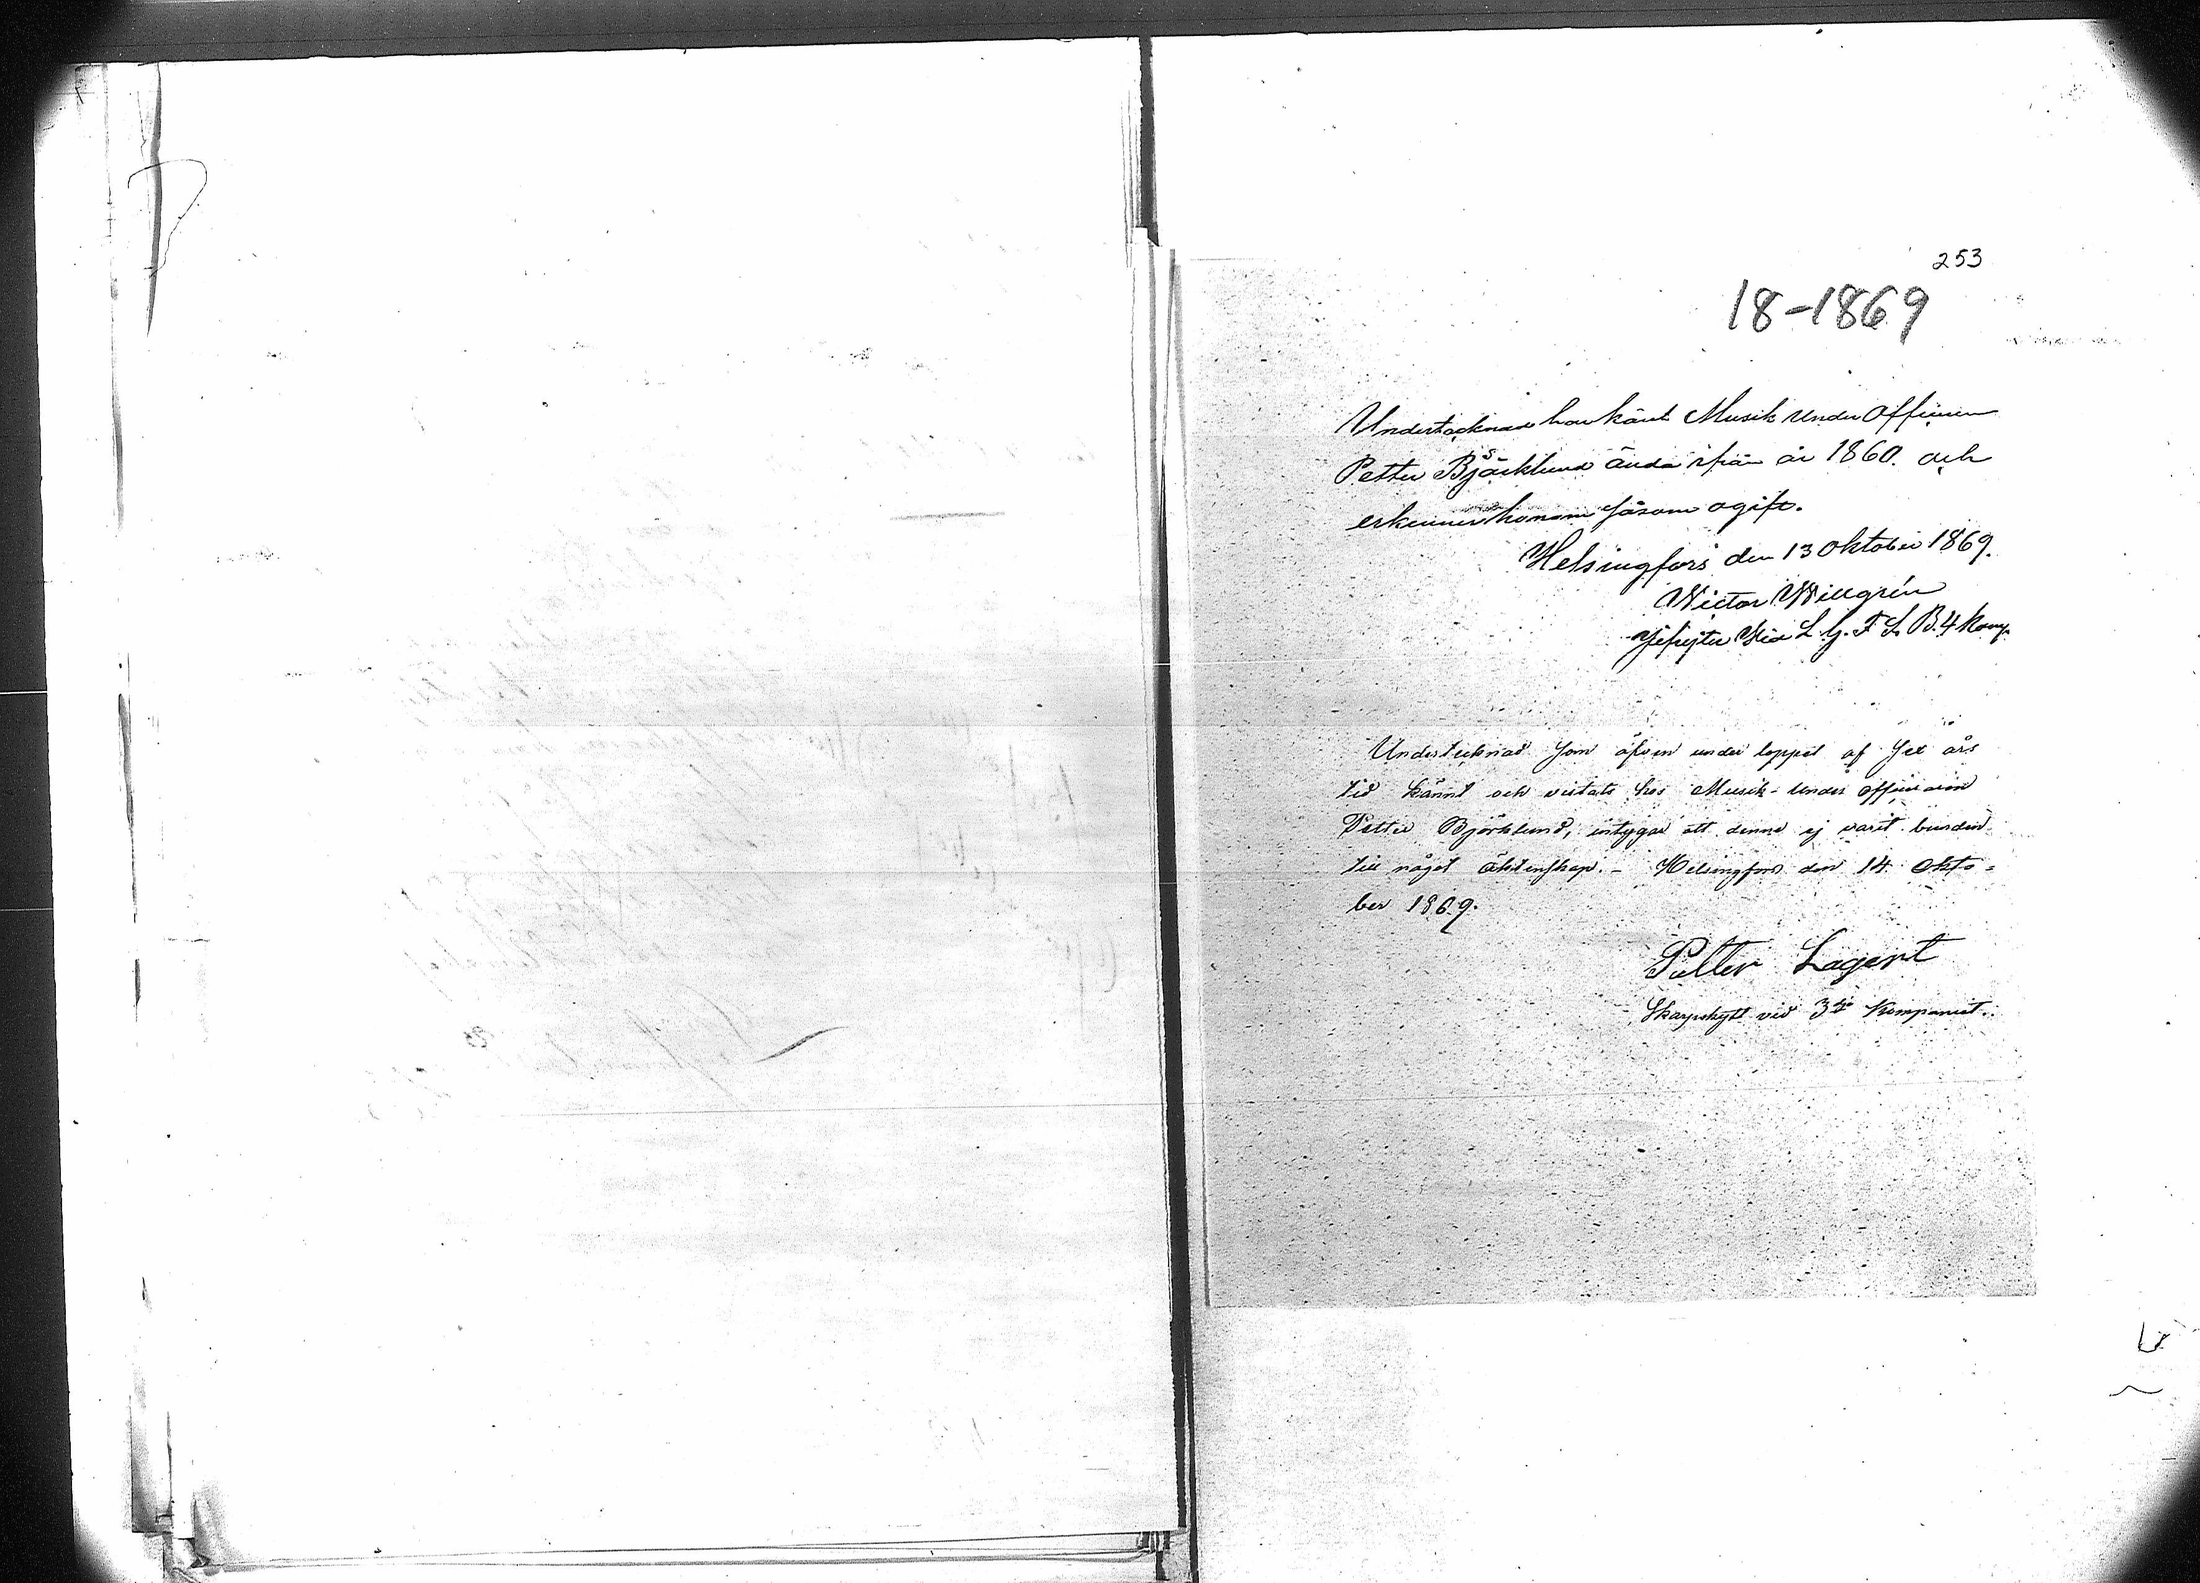 253
18-1869
Undertacknad har känt Musik Under Officeren
Petter Björklund ända ifrån år 1860. och
erkenner honom såsom ogift.
Helsingfors den 13 Oktober 1869.
Wictor Willgrén
Gefrejter Wid L. G. F. S. B. 4 Komp.
Undertecknad som äfven under loppet af sex års
tid kännt och vistats hos Musik-under officeraren
Petter Björklund, intygar att denne ej varit bunden
till något äktenskap. - Helsingfors den 14 Okto=
ber 1869.
Petter Lagert
Skarpskytt vid 3dje Kompaniet.